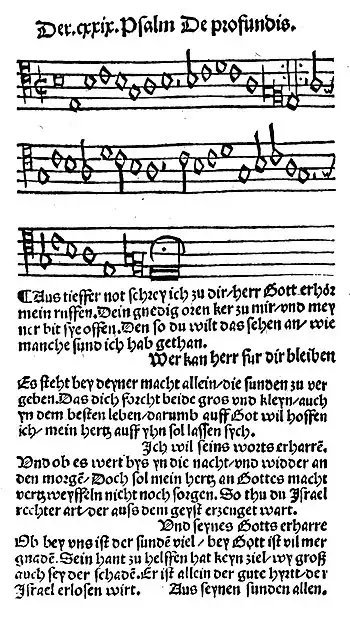 Der. cxxix. Psalm De profundis.
¶Aus tieffer not schrey ich zu dir/ herr Gott erhör
mein ruffen. Dein gnedig oren ker zu mir/ vnd mey
ner bit sye offen. Den so du wilt das sehen an/ wie
manche sund ich hab gethan.
Wer kan herr fur dir bleiben
Es steht bey deyner macht allein/ die sunden zu ver
geben. Das dich forcht beide gros vnd kleyn/ auch
yn dem besten leben/ darumb auff Got wil hoffen
ich/ mein hertz auff yhn sol lassen sych.
Jch wil seins worts erharrē.
Vnd ob es wert bys yn die nacht/ vnd widder an
den morgē/ Doch sol mein hertz an Gottes macht
vertzweyffeln nicht noch sorgen. So thu du Jsrael
rechter art/ der auss dem geyst erzeuget wart.
Vnd seynes Gotts erharre
Ob bey vns ist der sundē viel/ bey Got ist vil mer
gnadē. Sein hant zu helffen hat keyn ziel/ wy groß
auch sey der schadē. Er ist allein der gute hyrtt/ der
Jsrael erlosen wirt. Aus seynen sunden allen.